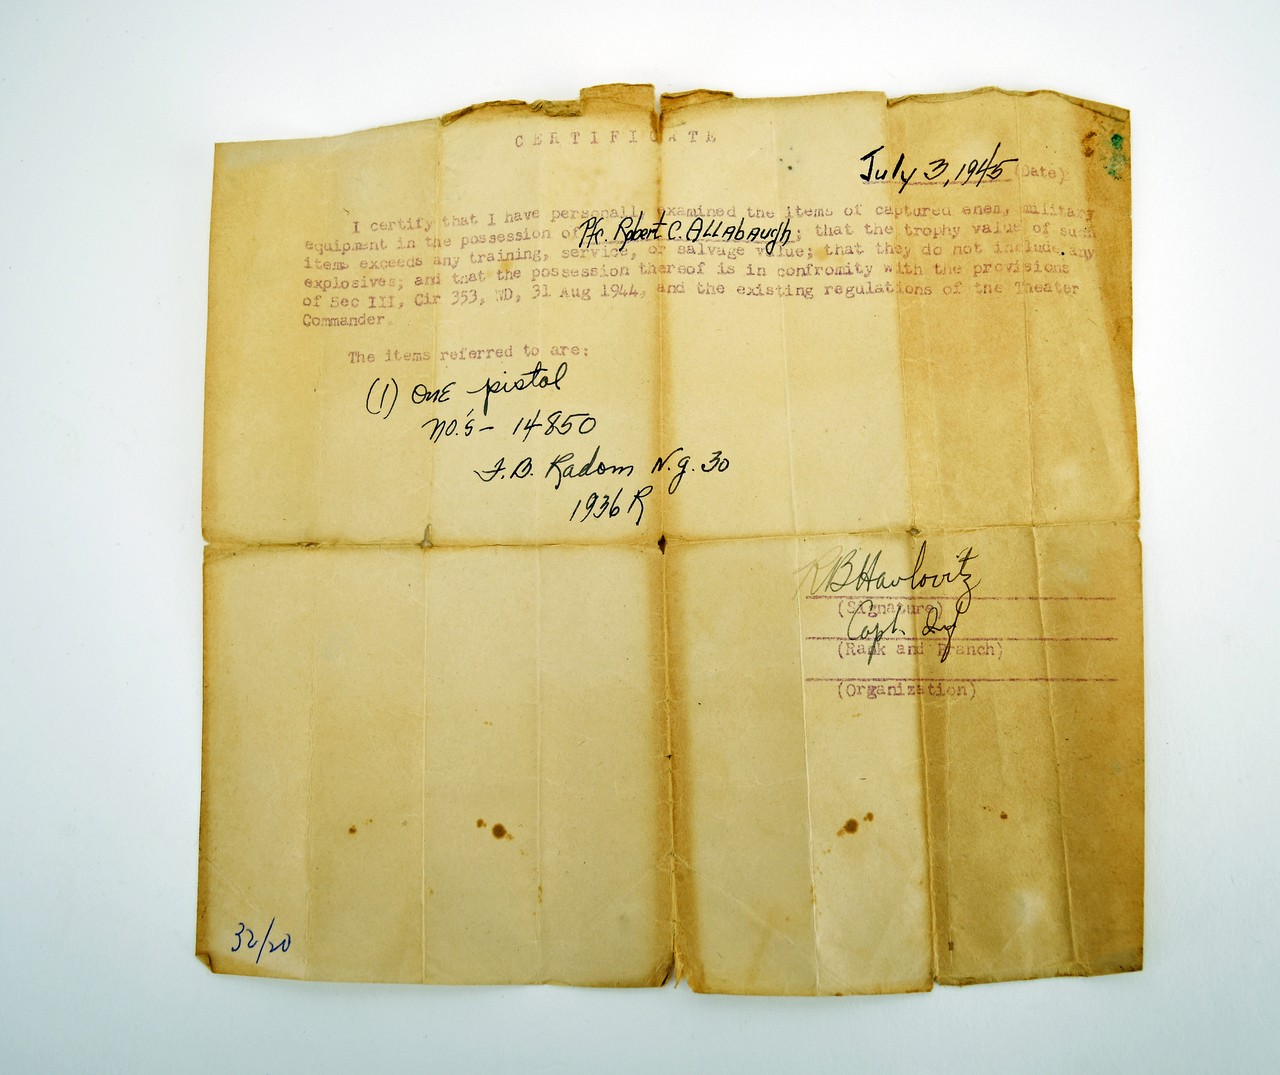 CERTIFICATE
July 3, 1945 (Date)
I certify that I have personally examined the items of captured enemy military
equipment in the possession of Pfc. Robert C. Allabaugh; that the trophy value of such
items exceeds any training, service, or salvage value; that they do not include any
explosives; and that the possession thereof is in confromity with the provisions
of Sec III, Cir 353, WD, 31 Aug 1944, and the existing regulations of the Theater
Commander.
The items referred to are:
(1) One pistol
no.'s - 14850
F.B. Radom N.g. 30
1936 R
R B Havlovitz
(Signature)
Capt. Inf
(Rank and Branch)
(Organization)
32/20